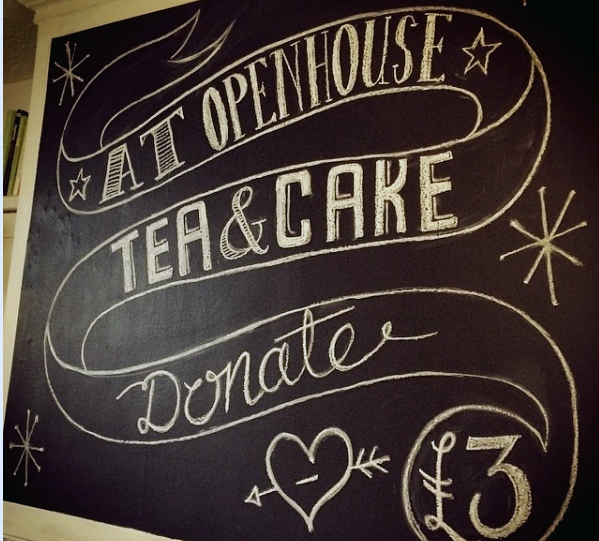 AT OPENHOUSE
TEA & CAKE
Donate
£3